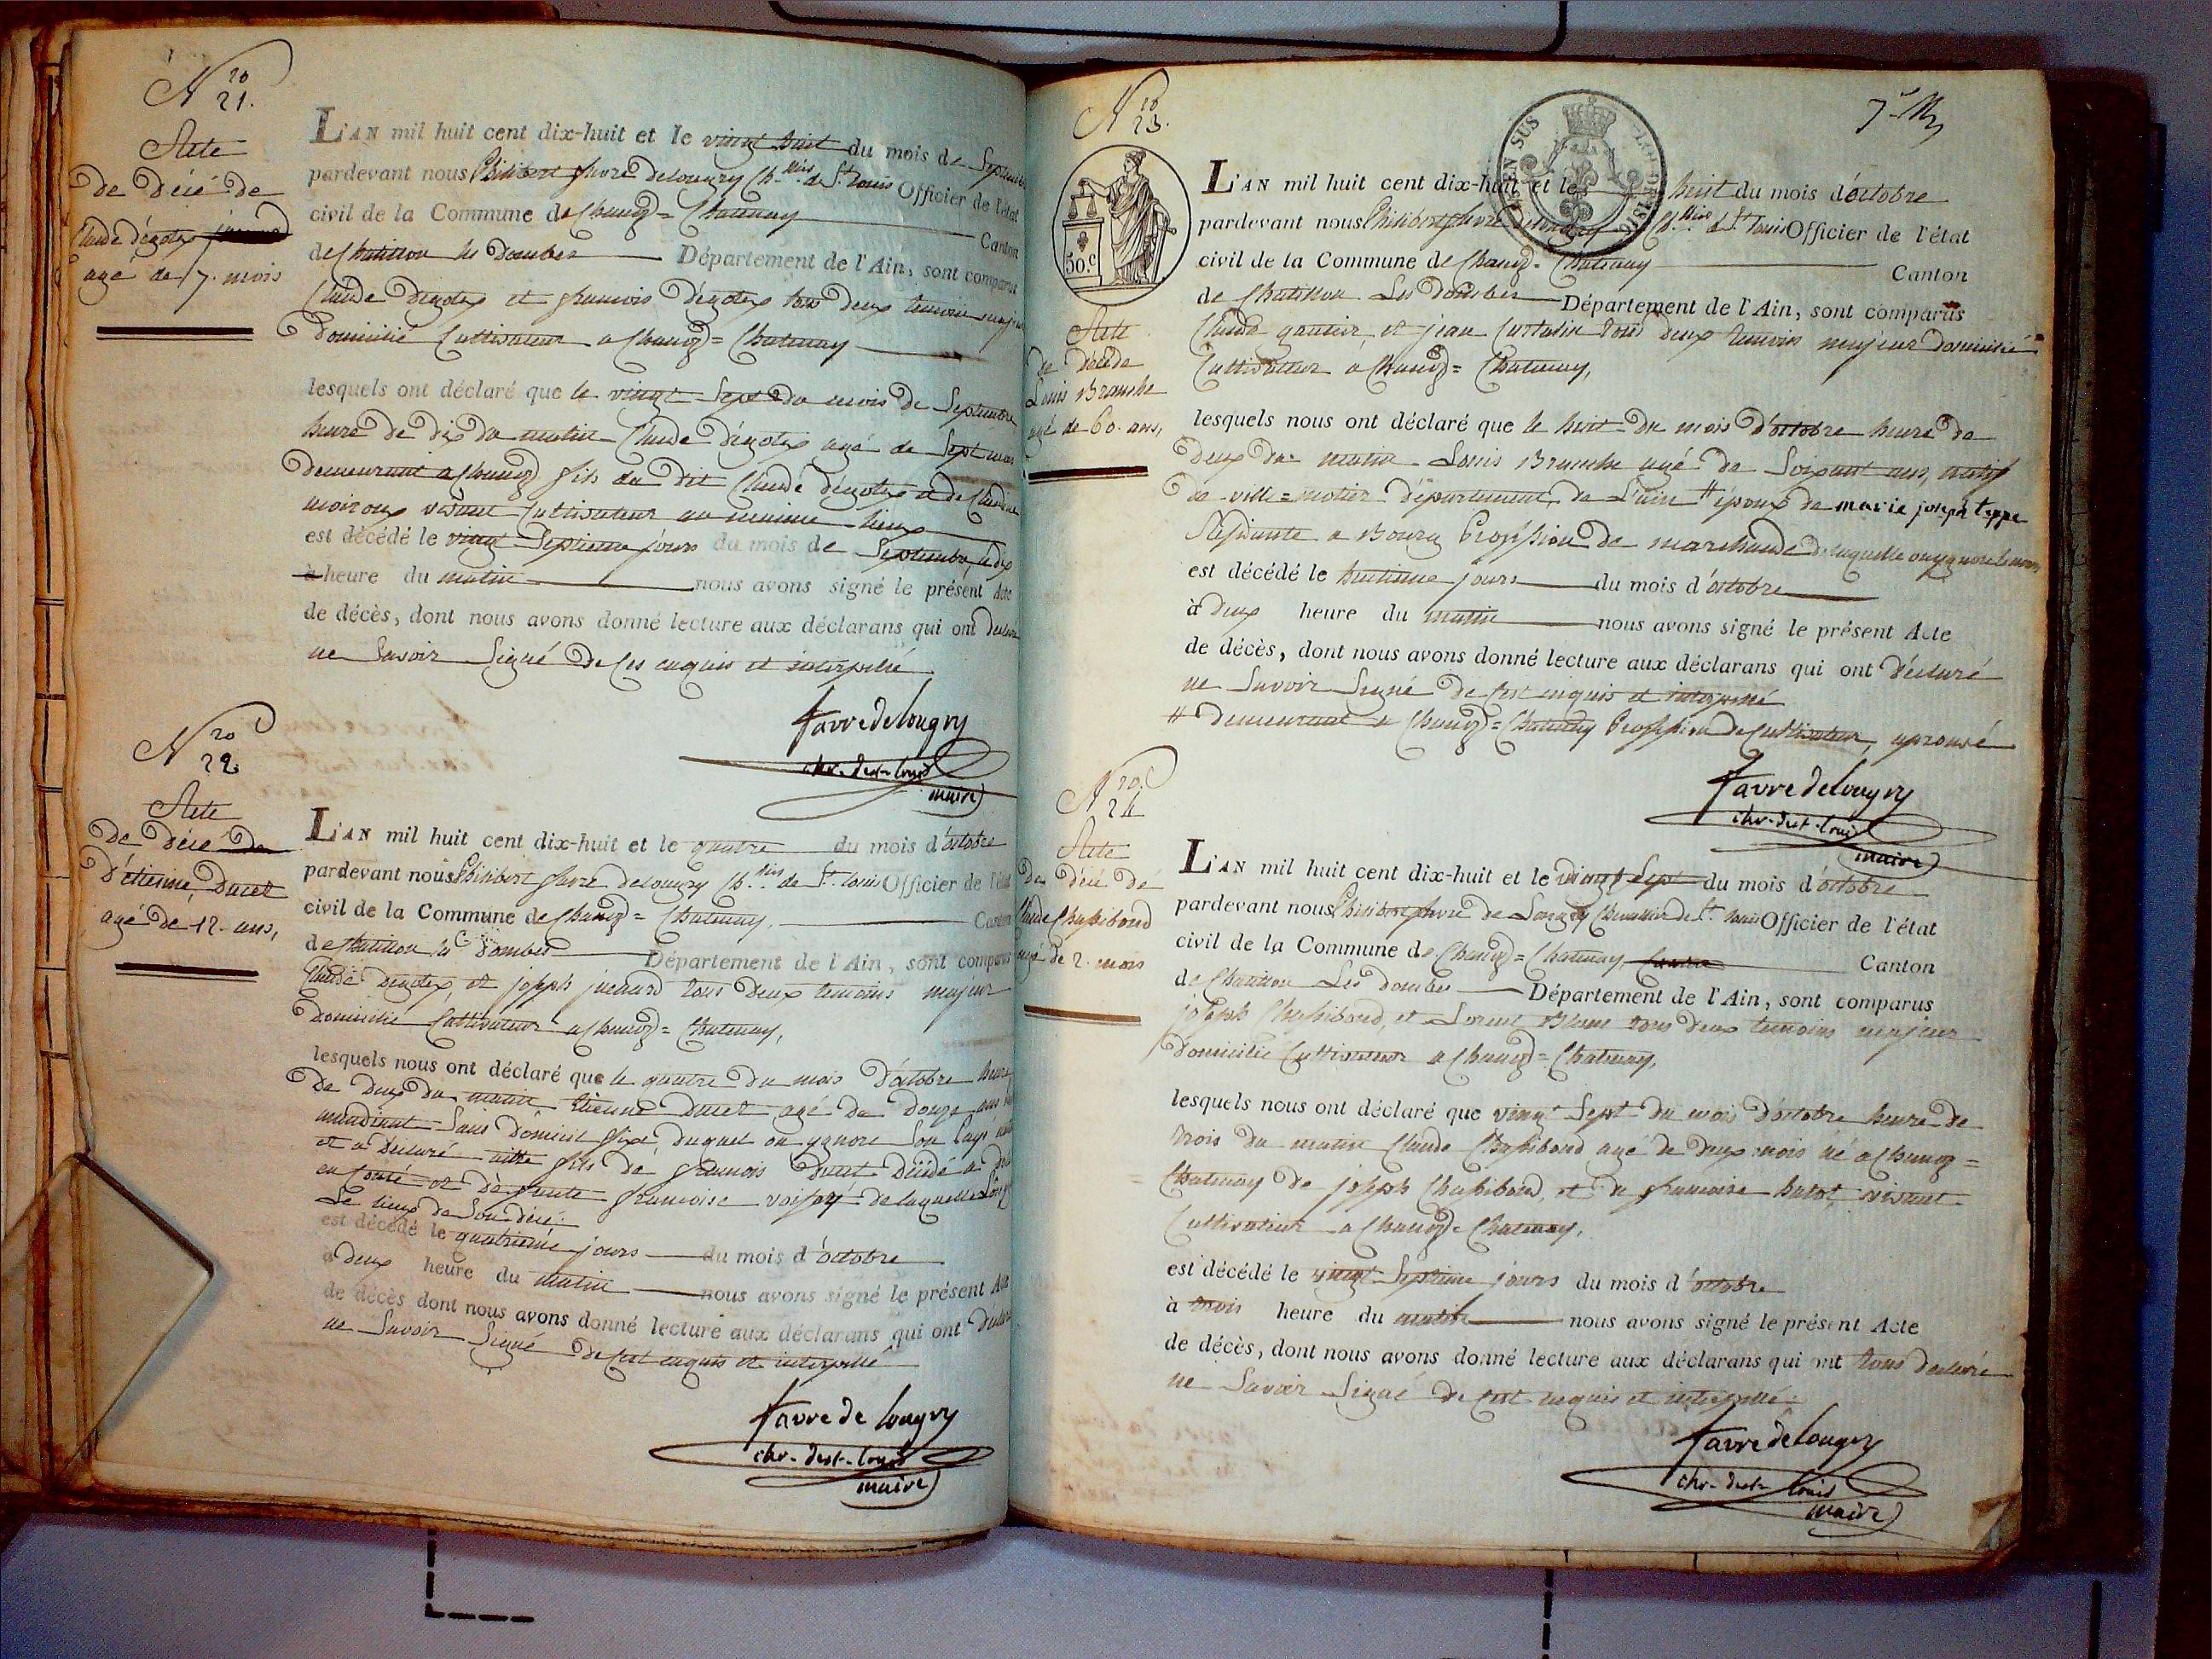 N.ro 21.
Acte
de décé de
Claude dégotex
agé de 7. mois
L'AN mil huit cent dix-huit et le vingt huit du mois de Septembre
pardevant nous Philibert favre delougry Ch.lier de St. Louis Officier de l'état
civil de la Commune de Chanoz = Chatenay Canton
de Chatillon les Dombes Département de l'Ain, sont comparus
Claude dégotex et francois dégotex tous deux temoins majeur
domicilié Cultivateur a Chanoz = Chatenay
lesquels ont déclaré que le vingt Sept du mois de Septembre
heure de dix du matin Claude dégotex agé de Sept mois
demeurant a Chanoz fils du dit Claude dégotex et de Claudine
moiroux vivant Cultivateur au meme lieux
est décédé le vingt Septieme jours du mois de Septembre, a dix
à heure du matin nous avons signé le présent Acte
de décès, dont nous avons donné lecture aux déclarans qui ont declaré
ne Savoir Signé de ces enquis et interpellé
favre delougry
chr. de st. louis
maire
N.ro 22.
Acte
de décé de
d'étienne Ducet
agé de 12. ans,
L'AN mil huit cent dix-huit et le quatre du mois d'octobre
pardevant nous Philibert favre delougry Ch.lier de St. louis Officier de l'état
civil de la Commune de Chanoz = Chatenay, Canton
de Chatillon les Dombes Département de l'Ain, sont comparus
Claude degotex, et joseph juenard tous deux temoins majeur
domicilié Cultivateur a Chanoz = Chatenay,
lesquels nous ont déclaré que le quatre du mois d'octobre heure
de deux du matin Etienne ducet agé de douze ans
mendiant Sans domicil fixe, duquel on ygnore Son pays
et a declaré etre fils de francois ducet décédé a
en Conté et de francoise de laquelle
Le lieux de Son décé,
est décédé le quatrieme jours du mois d'octobre
à deux heure du matin nous avons signé le présent Acte
de décès dont nous avons donné lecture aux déclarans qui ont declaré
ne Savoir Signé de cest enquis et interpellé
favre de lougry
chr. de st. louis
maire
7.
N.ro 23.
50.c
EN SUS
Acte
de décéde
Louis Branche
agé de 60. ans,
L'AN mil huit cent dix-huit et le huit du mois d'octobre
pardevant nous Philibert favre delougry Ch.lier de St. Louis Officier de l'état
civil de la Commune de Chanoz = Chatenay Canton
de Chatillon Les Dombes Département de l'Ain, sont comparus
Claude gautier, et jean Curtalin tous deux temoins majeur domicilié
Cultivateur a Chanoz = Chatenay,
lesquels nous ont déclaré que le huit du mois d'octobre heure de
deux du matin Louis Branche agé de Soixant ans, natif
de ville = motier département de L'ain # époux de marie joseph teppe
Résidante a Bourg Profession de marchande de laquelle on ygnore le nom,
est décédé le huitieme jours du mois d'octobre
à deux heure du matin nous avons signé le présent Acte
de décès, dont nous avons donné lecture aux déclarans qui ont déclaré
ne Savoir Signé de cest enquis et interpellé
# demeurant a Chanoz = Chatenay Profession de Cultivateur, aprouvé
favre delougry
chr. de st. louis
maire
N.ro 24
Acte
de décé de
Claude Chassiboud
agé de 2. mois
L'AN mil huit cent dix-huit et le vingt Sept du mois d'octobre
pardevant nous Philibert favre de Lougry Chevallier de St. Louis Officier de l'état
civil de la Commune de Chanoz = Chatenay, Canton
de Chatillon Les Dombes Département de l'Ain, sont comparus
joseph Chassiboud, et Lorent Blanc tous deux temoins majeur
domicilié Cultivateur a Chanoz = Chatenay,
lesquels nous ont déclaré que vingt Sept du mois d'octobre heure de
trois du matin Claude Chassiboud agé de deux mois né a Chanoz =
Chatenay de joseph Chassiboud, et de francoise butot vivant
Cultivateur a Chanoz = Chatenay,
est décédé le vingt Septieme jours du mois d'octobre
à trois heure du matin nous avons signé le présent Acte
de décès, dont nous avons donné lecture aux déclarans qui ont tous declaré
ne Savoir Signé de cest enquis et interpellé.
favre delougry
chr. de st. louis
maire